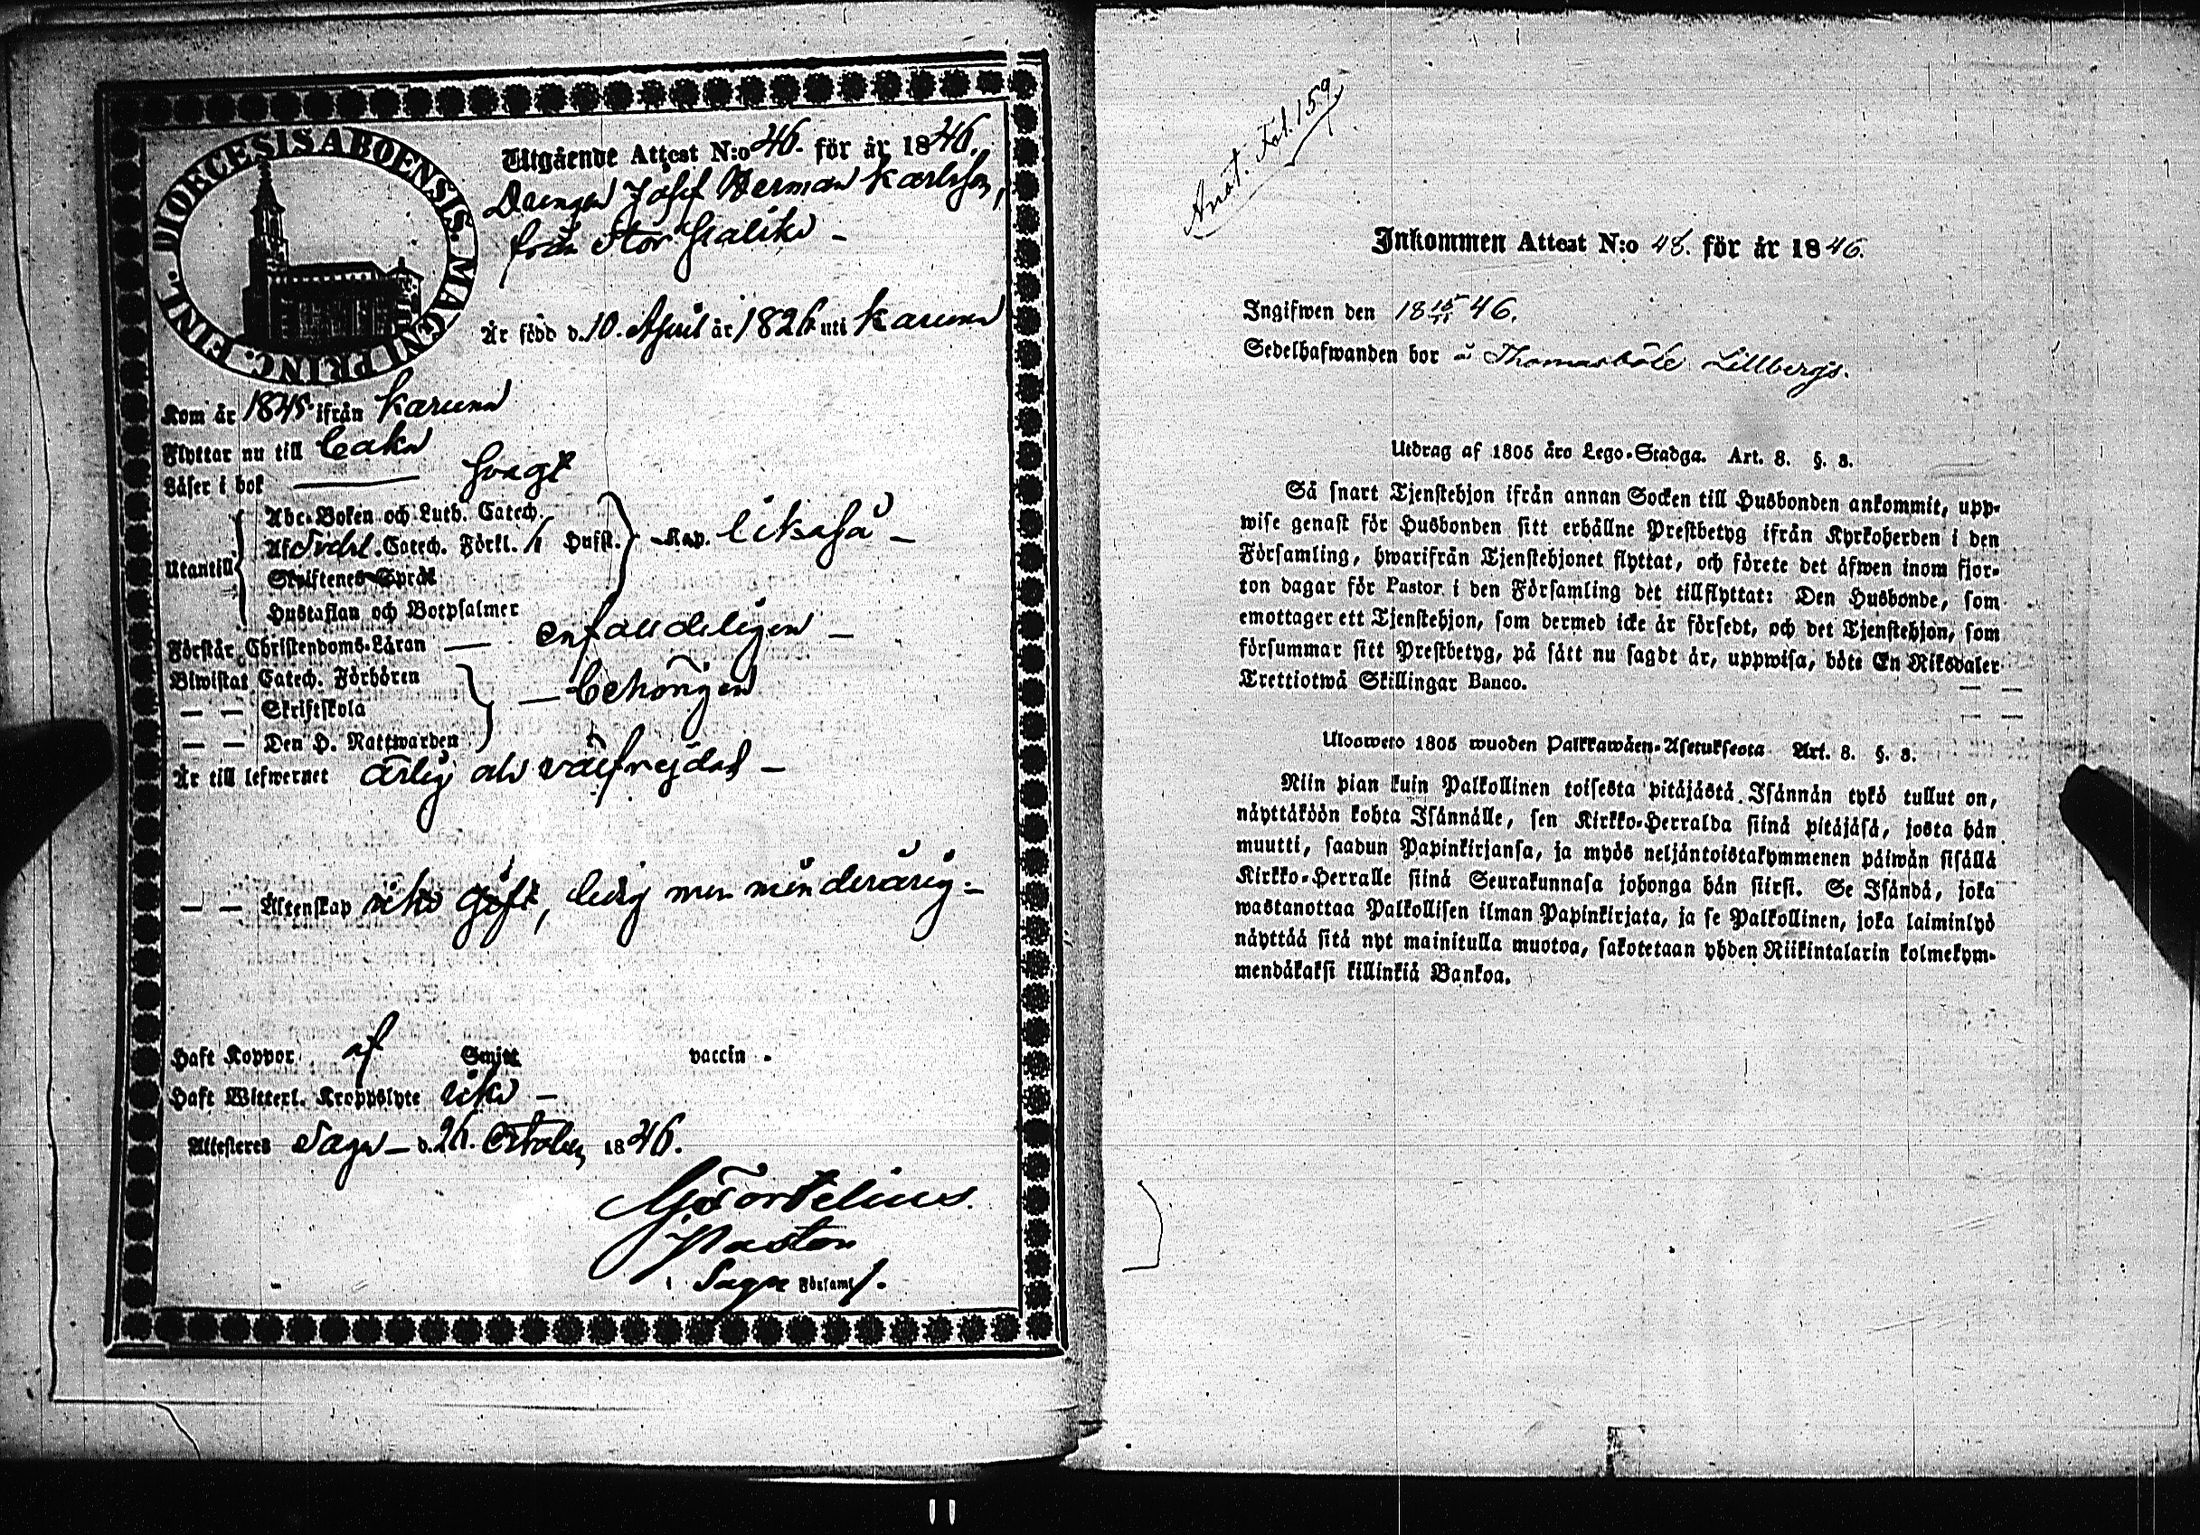 DIOECESIS ABOENSIS. MAGNI PRINC. FINL.
Utgående Attest N:o 46. för år 1846.
Drengen Josef Herman Karlsson,
från Stor
Är född d. 10. April år 1826 uti Karuna
Kom år 1845 ifrån Karuna
Flyttar nu till
Läser i bok — svagt
Abc-Boken och Luth. Catech.
Af Svebel. Catech. Förkl. Husst. Kap. likaså —
Utantill
Skriftenes Språk
Hustaflan och Botpsalmer
Förstår Christendoms-Läran — enfaldeligen —
Biwistat Catech. Förhören
— — Skriftskola — behörigen
— — Den H. Nattwarden
Är till lefwernet ärlig och välfrejdad —
— — Äktenskap icke gift, ledig men minderårig —
Haft Koppor af Smitt vaccin.
Haft Witterl. Kroppslyte icke —
Attesteres Sagu — d. 26. October 1846.
Pastor
i Sagu Församl.
Anot. Fol. 159.
Inkommen Attest N:o 48. för år 1846.
Ingifwen den 18 15/11 46.
Sedelhafwanden bor å Thomasböle Lillbergs.
Utdrag af 1805 års Lego-Stadga. Art. 8. §. 8.
Så snart Tjenstehjon ifrån annan Socken till Husbonden ankommit, upp-
wise genast för Husbonden sitt erhållne Prestbetyg ifrån Kyrkoherden i den
Församling, hwarifrån Tjenstehjonet flyttat, och förete det äfwen inom fjor-
ton dagar för Pastor i den Församling det tillflyttat: Den Husbonde, som
emottager ett Tjenstehjon, som dermed icke är försedt, och det Tjenstehjon, som
försummar sitt Prestbetyg, på sätt nu sagdt är, uppwisa, böte En Riksdaler
Trettiotwå Skillingar Banco.
Ulosweto 1805 wuoden Palkkawäen-Asetuksesta Art. 8. §. 8.
Niin pian kuin Palkollinen toisesta pitäjästä Isännän tykö tullut on,
näyttäköön kohta Isännälle, sen Kirkko-Herralda siinä pitäjäsä, josta hän
muutti, saadun Papinkirjansa, ja myös neljäntoistakymmenen päiwän sisällä
Kirkko-Herralle siinä Seurakunnasa johonga hän siirsi. Se Isändä, joka
wastanottaa Palkollisen ilman Papinkirjata, ja se Palkollinen, joka laiminlyö
näyttää sitä nyt mainitulla muotoa, sakotetaan yhden Riikintalarin kolmekym-
mendäkaksi killinkiä Bankoa.